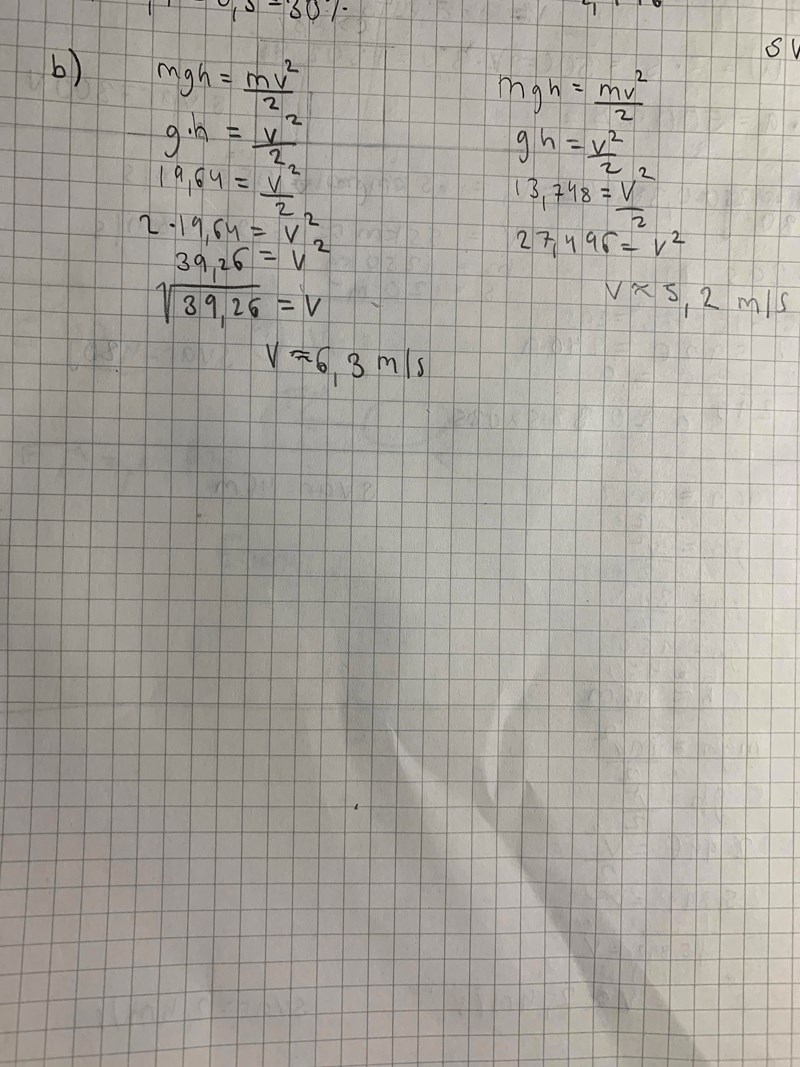 = 30%
b)
mgh = mv²/2
g·h = v²/2
19,64 = v²/2
2·19,64 = v²
39,26 = v²
√39,26 = v
v ≈ 6,3 m/s
mgh = mv²/2
gh = v²/2
13,748 = v²/2
27,496 = v²
v ≈ 5,2 m/s